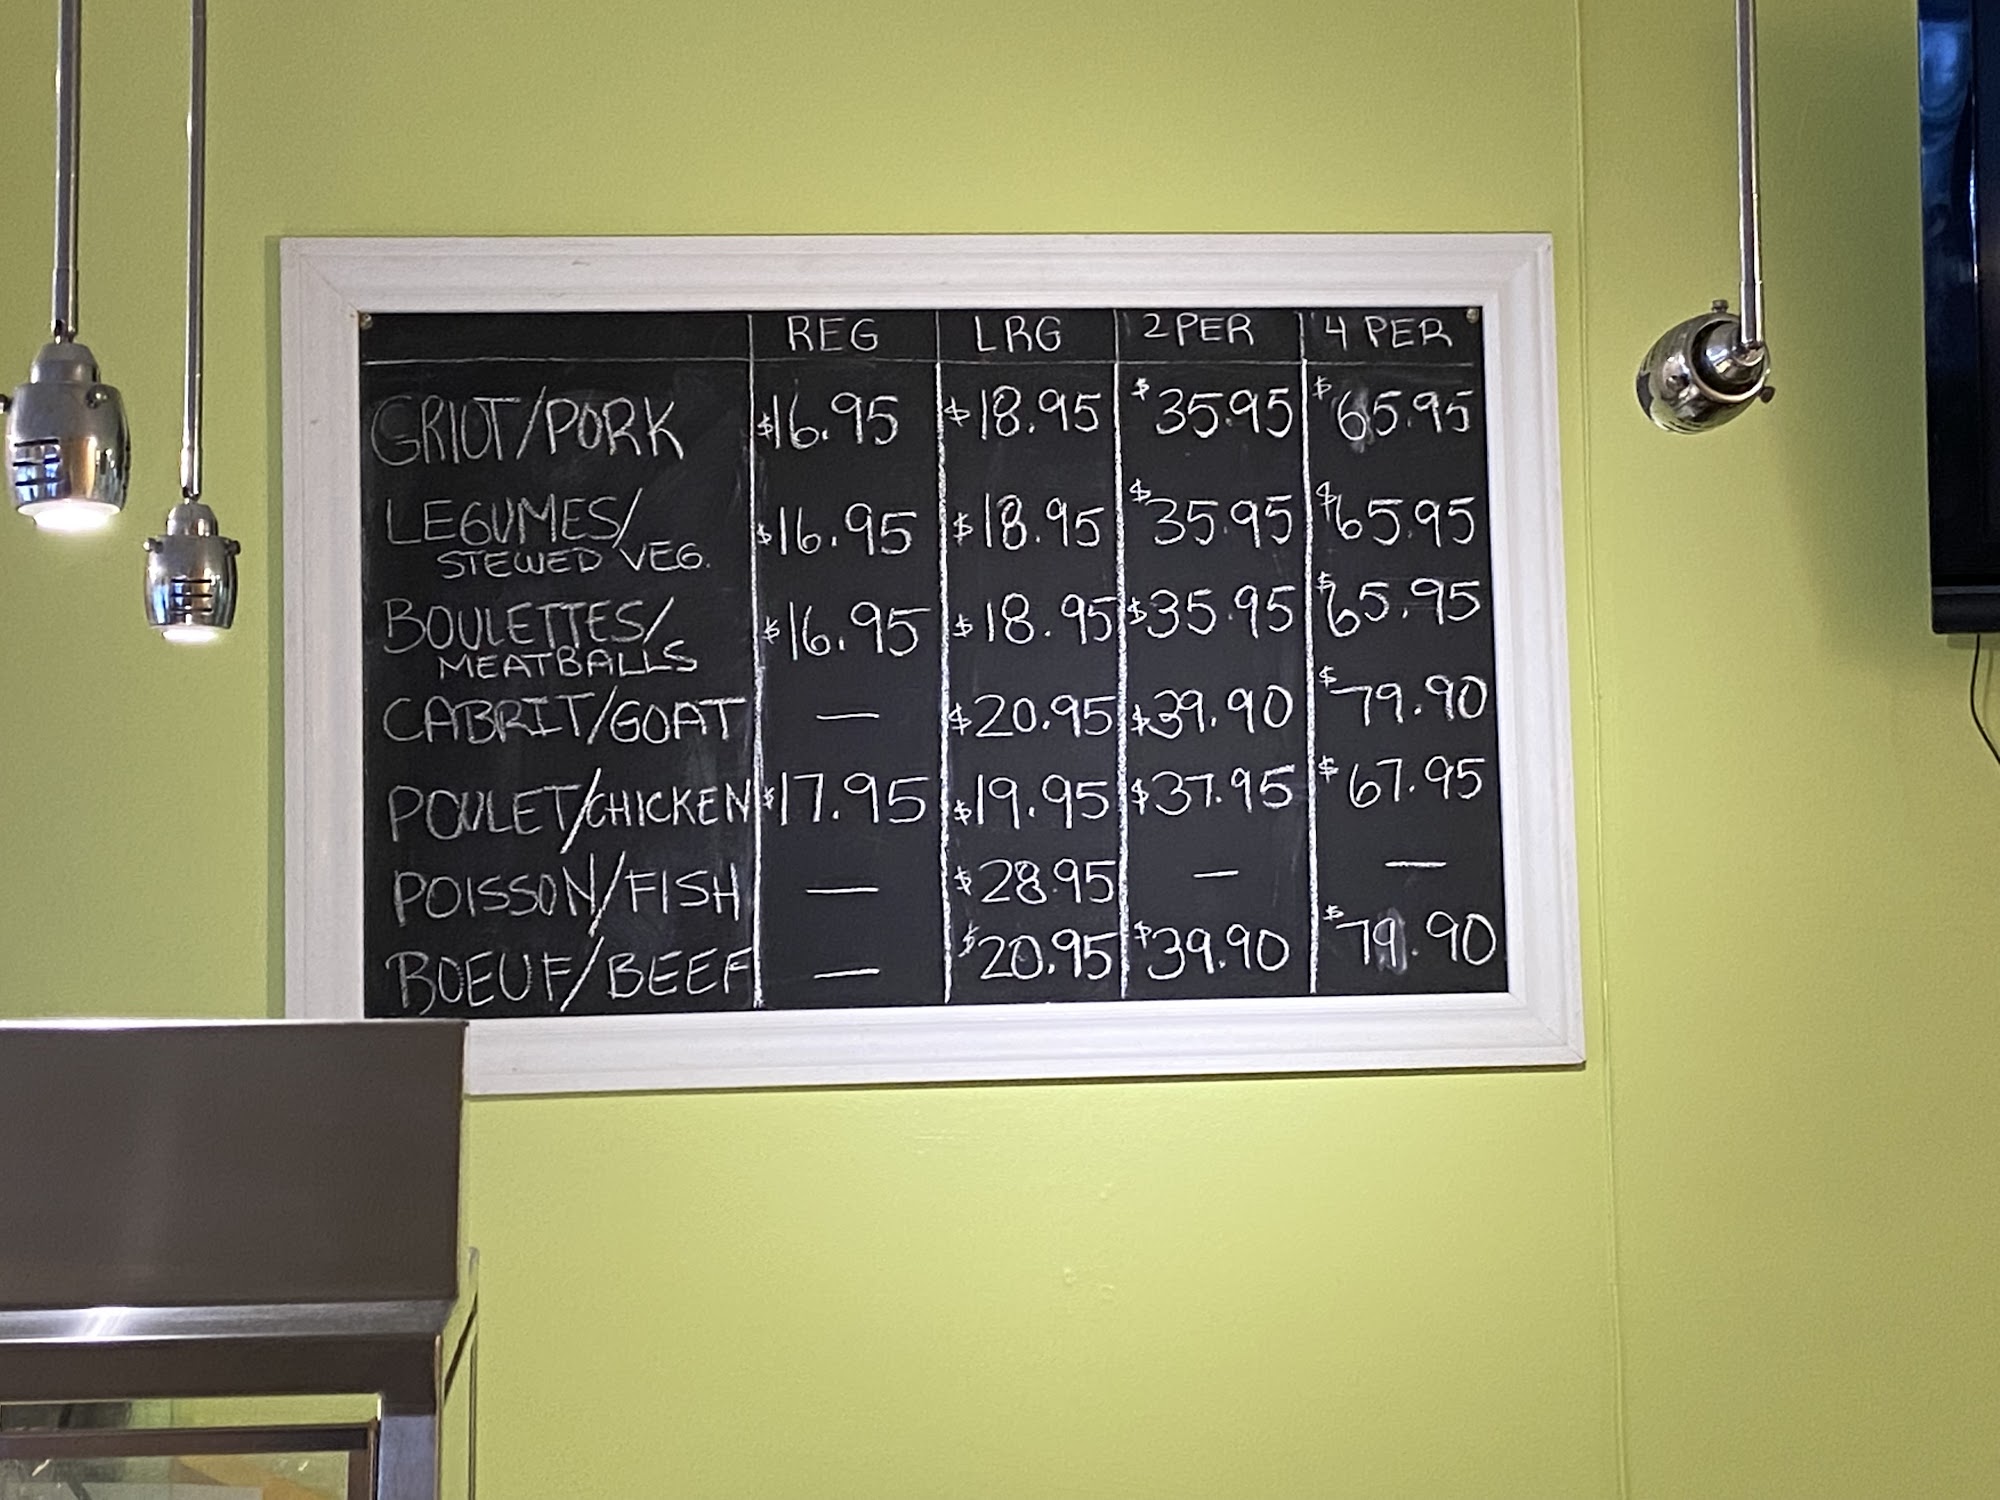 REG LRG 2 PER 4 PER
GRIOT/PORK $16.95 $18.95 $35.95 $65.95
LEGUMES/ $16.95 $18.95 $35.95 $65.95
STEWED VEG.
BOULETTES/ $16.95 $18.95 $35.95 $65.95
MEATBALLS
CABRIT/GOAT — $20.95 $39.90 $79.90
POULET/CHICKEN $17.95 $19.95 $37.95 $67.95
POISSON/FISH — $28.95 — —
BOEUF/BEEF — $20.95 $39.90 $79.90